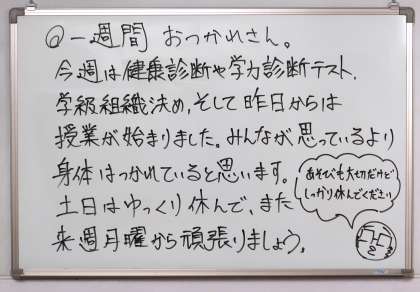 ◎一週間 おつかれさん。
今週は健康診断や学力診断テスト、
学級組織決め、そして昨日からは
授業が始まりました。みんなが思っているより
身体はつかれていると思います。
土日はゆっくり休んで、また
来週月曜から頑張りましょう。
あそびも大切だけど
しっかり休んでください